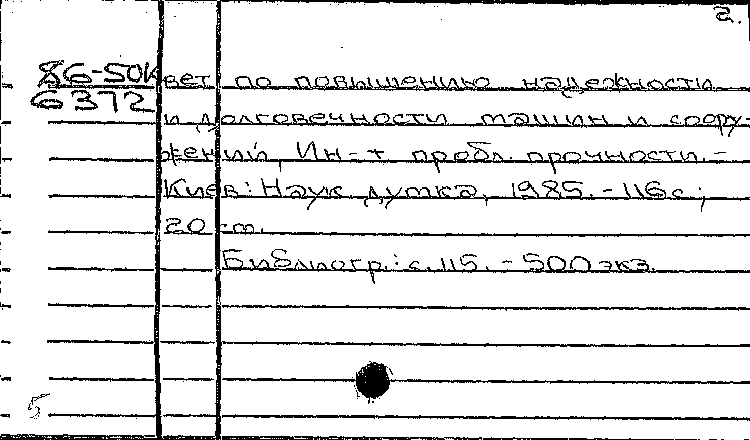 2.
86-50К вет по повышению надежности
6372 и долговечности машин и соору-
жений, Ин-т пробл. прочности.-
Киев: Наук. думка, 1985. -116с;
20 см.
Библиогр.: с.115. - 500 экз.
5